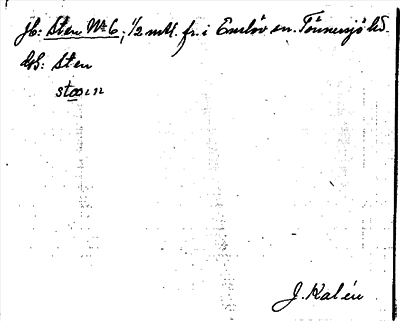 Jb: Sten No 6; 1/2 mtl. fr. i Enslöv sn. Tönnersjö hd.
Gb: Sten
stæn
J. Kalén